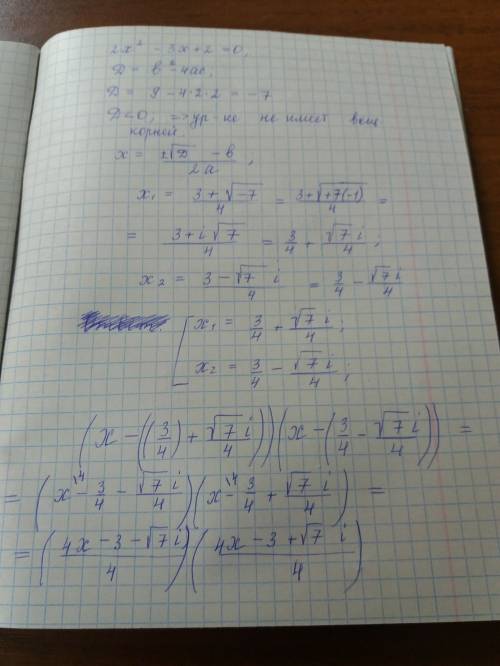 2x² - 3x + 2 = 0,
D = b² - 4ac,
D = 9 - 4·2·2 = -7
D < 0, => ур-ие не имеет вещ
корней.
x = (±√D - b)/2a,
x₁ = (3 + √-7)/4 = (3 + √+7(-1))/4 =
= (3 + i√7)/4 = 3/4 + √7 i/4;
x₂ = (3 - √7 i)/4 = 3/4 - √7 i/4
[ x₁ = 3/4 + √7 i/4;
x₂ = 3/4 - √7 i/4;
(x - ((3/4) + √7 i/4))(x - (3/4 - √7 i/4)) =
= (x\⁴ - 3/4 - √7 i/4)(x\⁴ - 3/4 + √7 i/4) =
= ((4x - 3 - √7 i)/4)((4x - 3 + √7 i)/4)